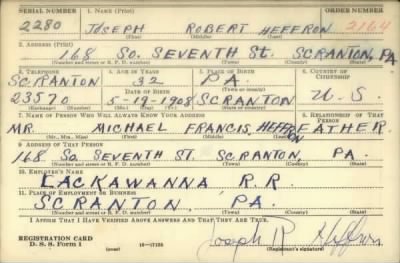 SERIAL NUMBER 1. NAME (Print) ORDER NUMBER
2280 JOSEPH ROBERT HEFFRON 2164
(First) (Middle) (Last)
2. ADDRESS (Print)
168 So. SEVENTH St. SCRANTON, PA
(Number and street or R. F. D. number) (Town) (County) (State)
3. TELEPHONE 4. AGE IN YEARS 5. PLACE OF BIRTH 6. COUNTRY OF CITIZENSHIP
SCRANTON 32 PA.
DATE OF BIRTH (Town or county)
23570 5-19-1908 SCRANTON U.S.
(Exchange) (Number) (Mo.) (Day) (Yr.) (State or country)
7. NAME OF PERSON WHO WILL ALWAYS KNOW YOUR ADDRESS 8. RELATIONSHIP OF THAT PERSON
MR. MICHAEL FRANCIS, HEFFRON FATHER.
(Mr., Mrs., Miss) (First) (Middle) (Last)
9. ADDRESS OF THAT PERSON
168 So. SEVENTH ST. SCRANTON, PA.
(Number and street or R. F. D. number) (Town) (County) (State)
10. EMPLOYER'S NAME
LACKAWANNA R.R.
11. PLACE OF EMPLOYMENT OR BUSINESS
SCRANTON, PA.
(Number and street or R. F. D. number) (Town) (County) (State)
I AFFIRM THAT I HAVE VERIFIED ABOVE ANSWERS AND THAT THEY ARE TRUE.
REGISTRATION CARD
D. S. S. Form 1 Joseph R Heffron
(Registrant's signature)